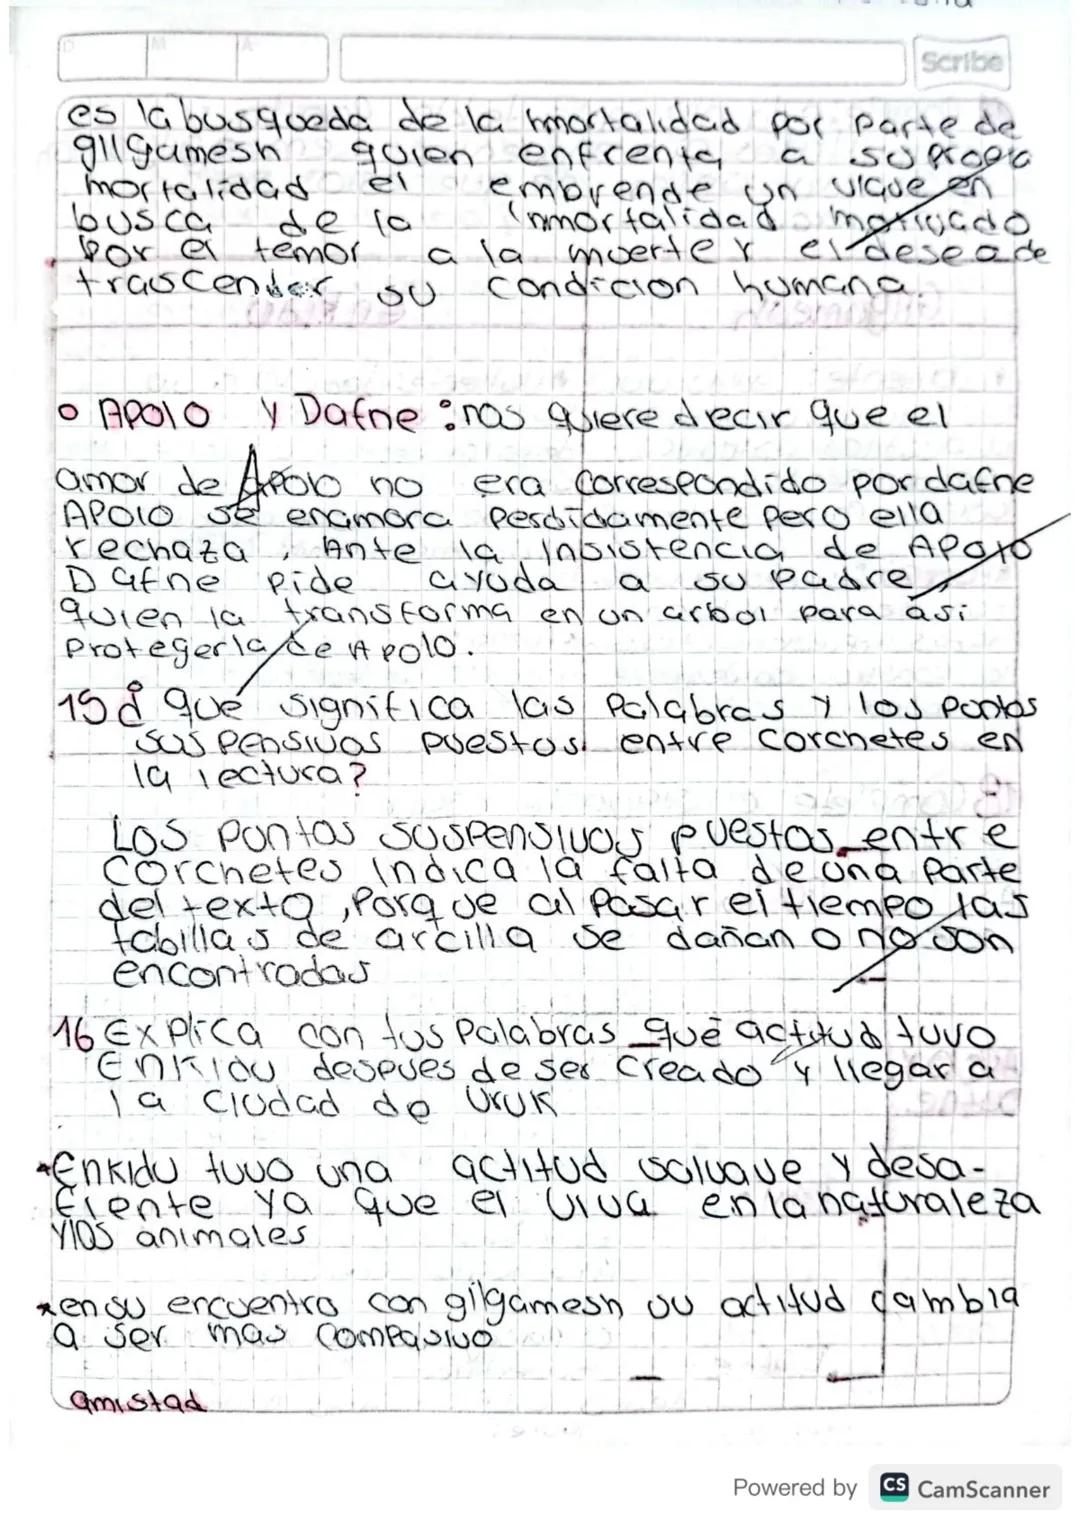 D M A Scribe
es la busqueda de la inmortalidad por parte de
gilgamesh quien enfrenta a su propia
mortalidad el emprende un viaue en
busca de la inmortalidad motivado
por el temor a la muerte y el deseo de
trascender su condicion humana.
• Apolo y Dafne: nos quiere decir que el
amor de Apolo no era correspondido por dafne
Apolo se enamora perdidamente pero ella
rechaza, Ante la insistencia de Apolo
Dafne pide ayuda a su padre,
quien la transforma en un arbol para asi
protegerla de Apolo.
15 ¿ que significa las palabras y los pontos
suspensivos puestos entre corchetes en
la lectura?
Los puntos suspensivos puestos entre
corchetes indica la falta de una parte
del texto, porque al pasar el tiempo las
tabillas de arcilla se dañan o no son
encontradas
16 Explica con tus palabras que actitud tuvo
Enkidu despues de ser creado y llegar a
la ciudad de Uruk
*Enkidu tuvo una actitud salvaue y desa-
fiente ya que el vivia en la naturaleza
y los animales
*en su encuentro con gilgamesh su actitud cambia
a ser mas compasivo
amistad
Powered by CS CamScanner